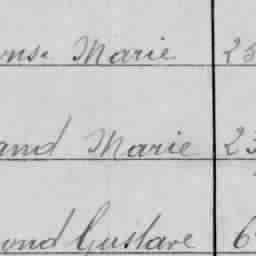 onse Marie 25
and Marie 23
ond Gustave 6